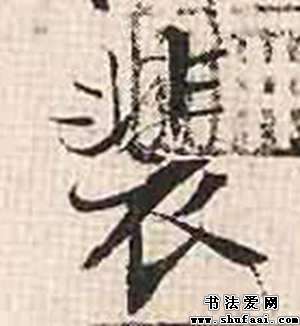 裴
书法爱网
www.shufaai.com